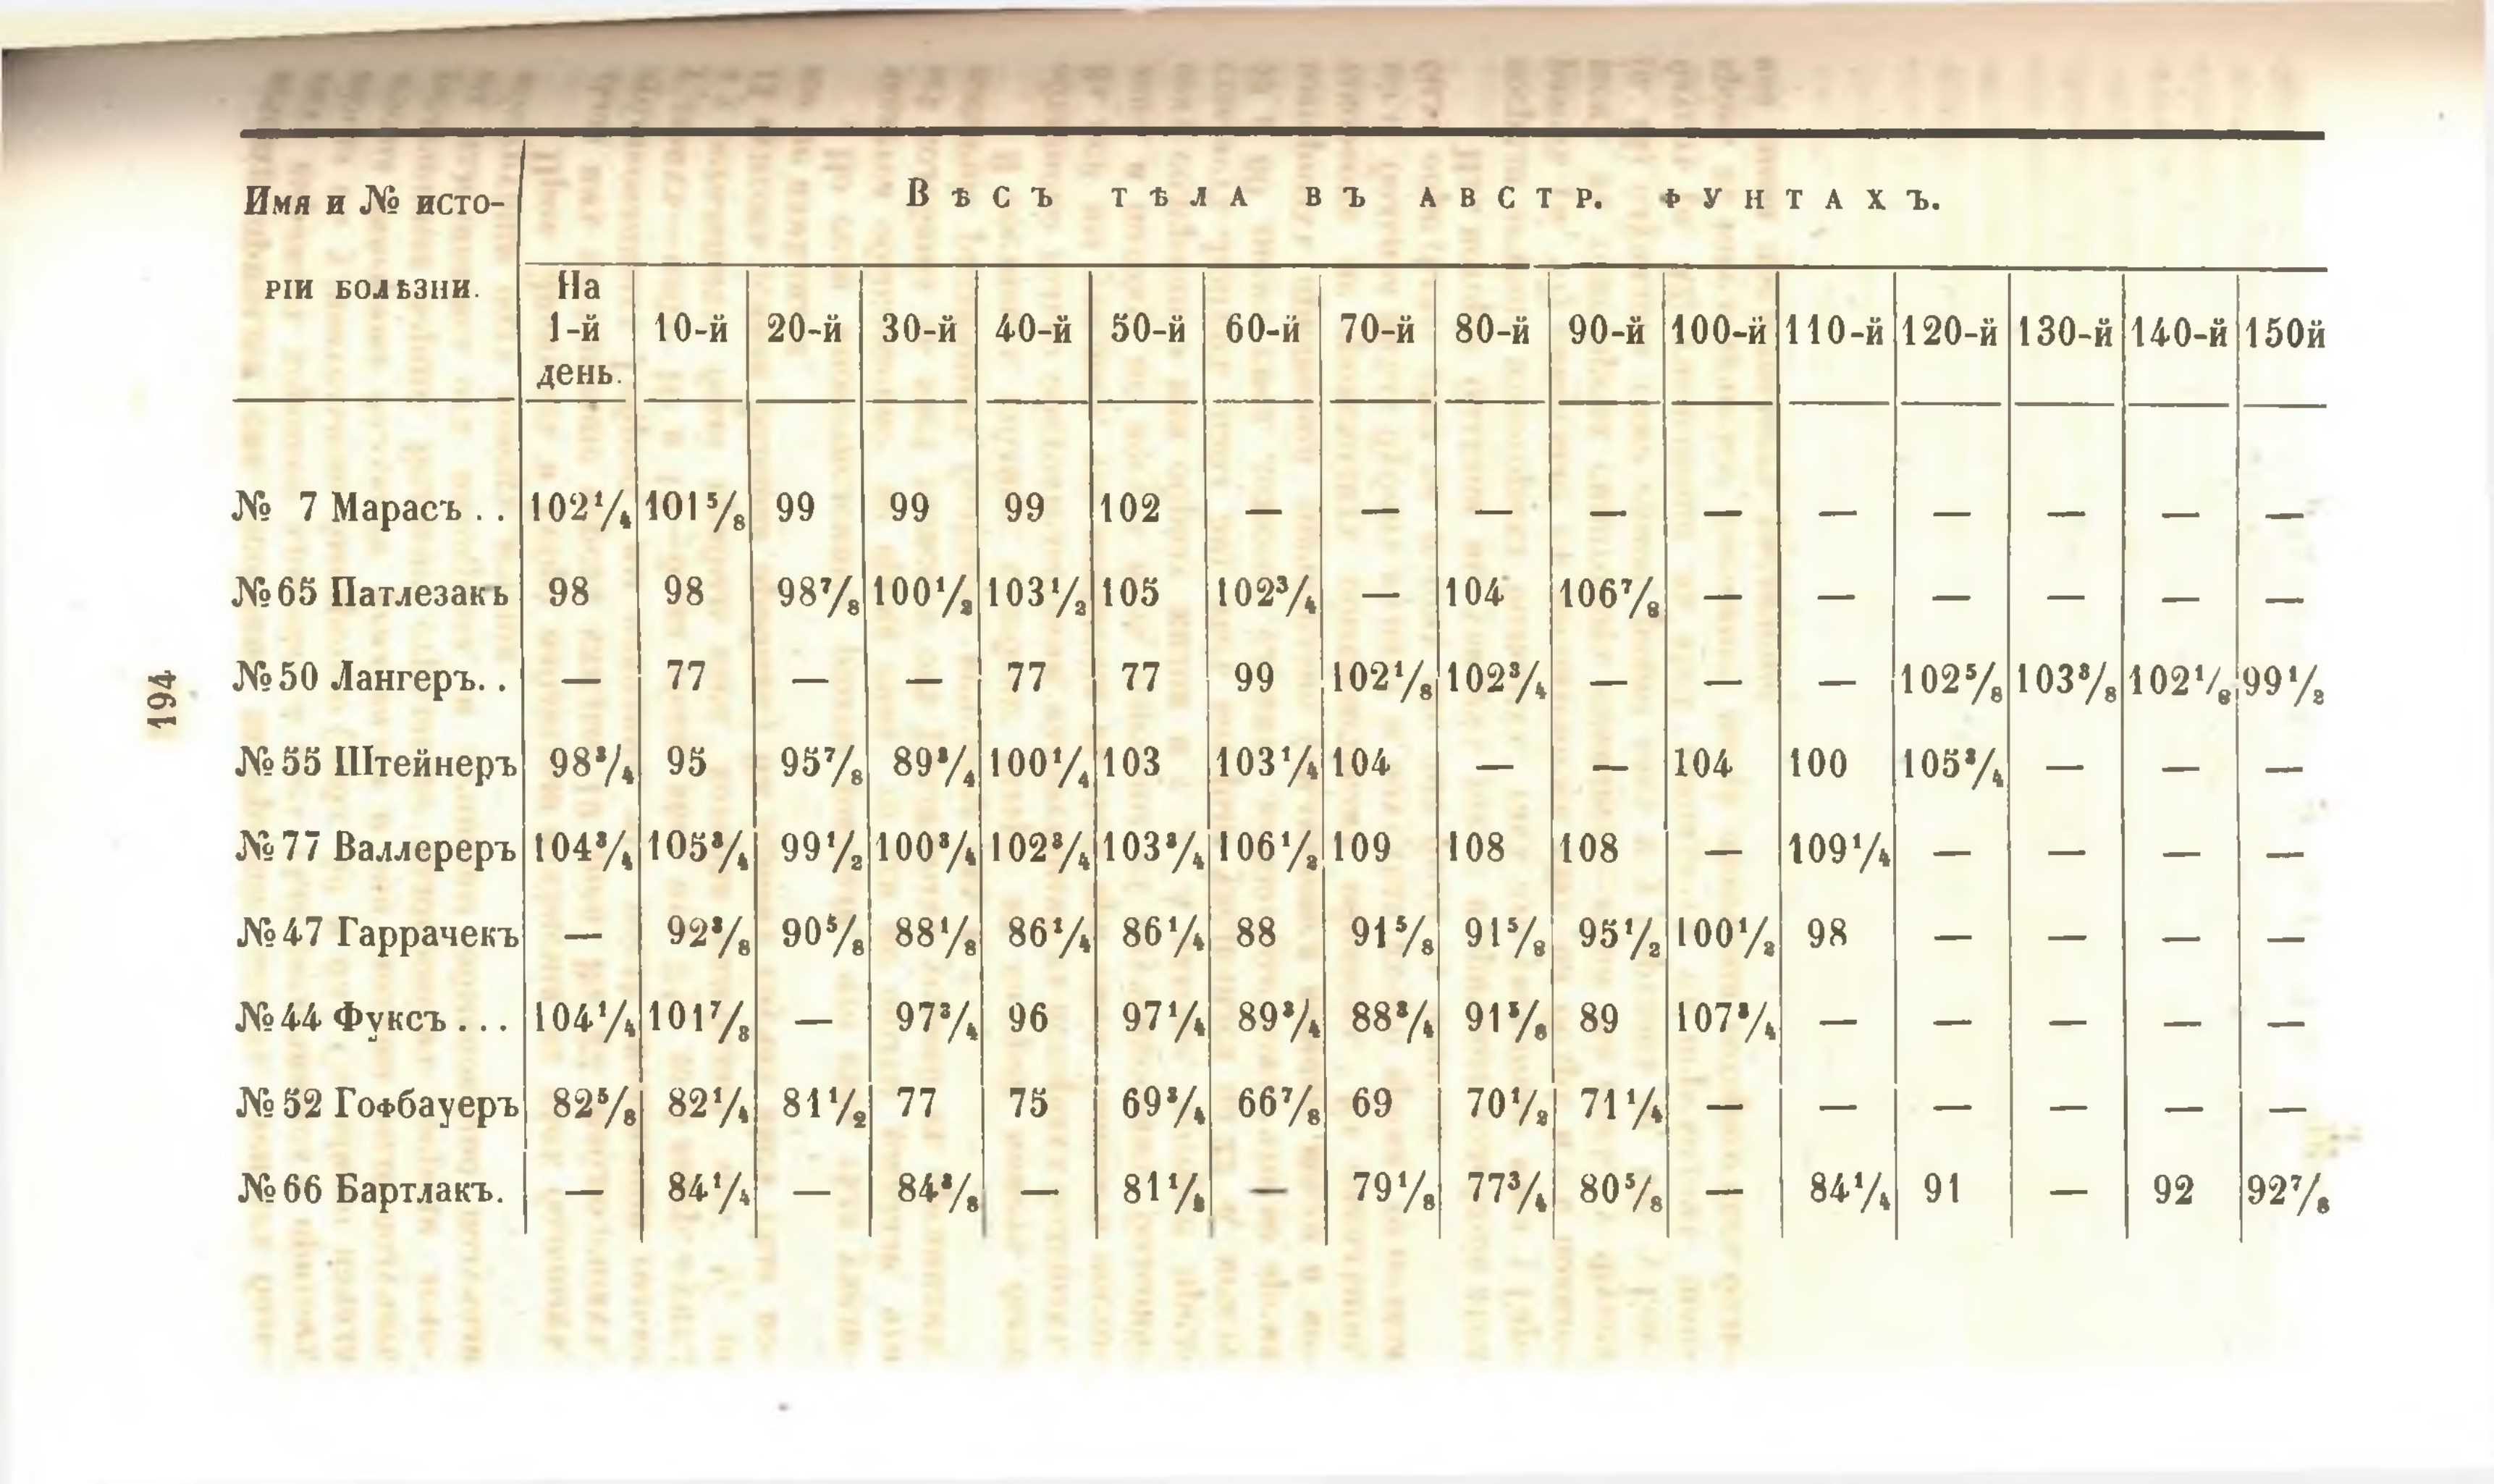 Имя и № исто-
рiи болѣзни.
Вѣсъ тѣла въ австр. фунтахъ.
На 1-й день. 10-й 20-й 30-й 40-й 50-й 60-й 70-й 80-й 90-й 100-й 110-й 120-й 130-й 140-й 150й
№ 7 Марасъ . . 102¹/₄ 101⁵/₈ 99 99 99 102 — — — — — — — — — —
№ 65 Патлезакъ 98 98 98⁷/₈ 100¹/₂ 103¹/₂ 105 102³/₄ — 104 106⁷/₈ — — — — — —
№ 50 Лангеръ. . — 77 — — 77 77 99 102¹/₈ 102³/₄ — — — 102⁵/₈ 103³/₈ 102¹/₈ 99¹/₂
№ 55 Штейнеръ 98³/₄ 95 95⁷/₈ 89³/₄ 100¹/₄ 103 103¹/₄ 104 — — 104 100 105³/₄ — — —
№ 77 Валлереръ 104³/₄ 105³/₄ 99¹/₂ 100³/₄ 102³/₄ 103³/₄ 106¹/₂ 109 108 108 — 109¹/₄ — — — —
№ 47 Гаррачекъ — 92³/₈ 90⁵/₈ 88¹/₈ 86¹/₄ 86¹/₄ 88 91⁵/₈ 91⁵/₈ 95¹/₂ 100¹/₂ 98 — — — —
№ 44 Фуксъ . . . 104¹/₄ 101⁷/₈ — 97³/₄ 96 97¹/₄ 89³/₄ 88³/₄ 91⁵/₈ 89 107³/₄ — — — — —
№ 52 Гофбауеръ 82⁵/₈ 82¹/₄ 81¹/₂ 77 75 69³/₄ 66⁷/₈ 69 70¹/₂ 71¹/₄ — — — — — —
№ 66 Бартлакъ. — 84¹/₄ — 84³/₈ — 81¹/₂ — 79¹/₈ 77³/₄ 80⁵/₈ — 84¹/₄ 91 — 92 92⁷/₈
194